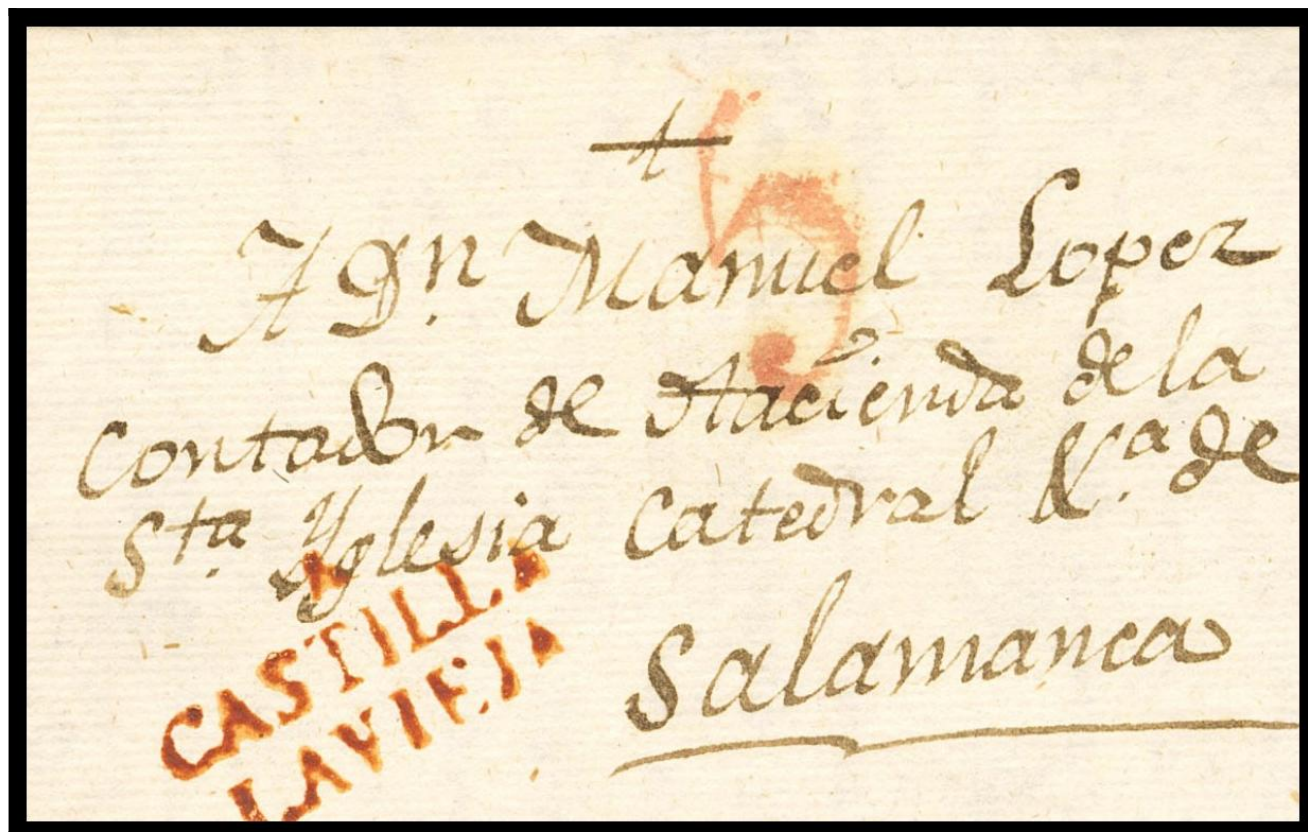 5
A Dn. Manuel Lopez
Contador de Hacienda de la
Sta. Yglesia Catedral de
Salamanca
CASTILLA
LA VIEJA